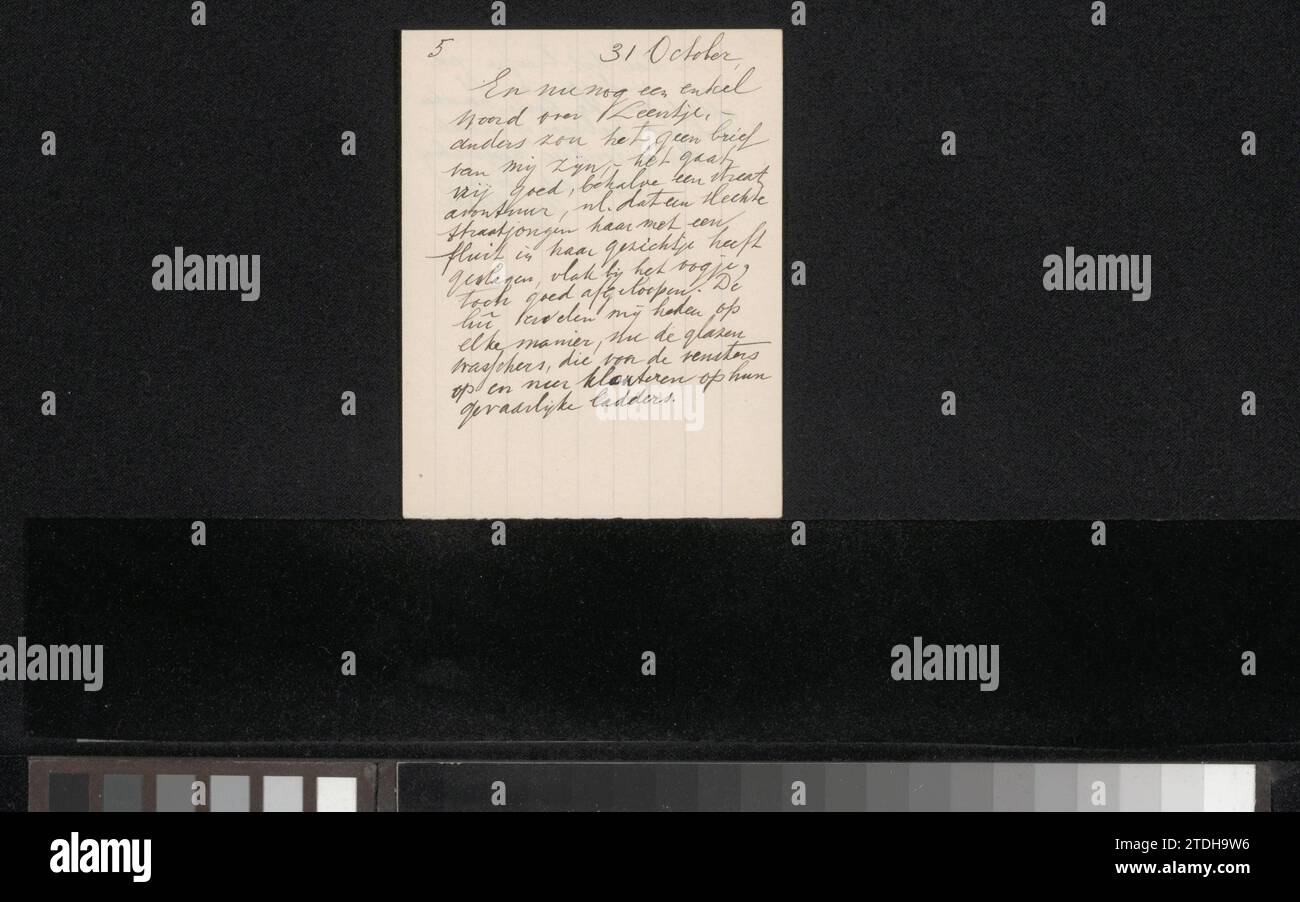 5 31 October,
En nu nog een enkel
woord over Leentje, -
anders zou het geen brief
van mij zijn, - het gaat
vrij goed, behalve een straat
avontuur, nl. dat een slechte
straatjongen haar met een
fluit in haar gezichtje heeft
geslagen, vlak bij het oogje,
toch goed afgeloopen. De
lui mij heden op
elke manier, nu de glazen
wasschers, die voor de vensters
op en neer klauteren op hun
gevaarlijke ladders.
alamy
alamy
alamy
alamy
alamy
alamy
Image ID: 2TDH9W6
www.alamy.com